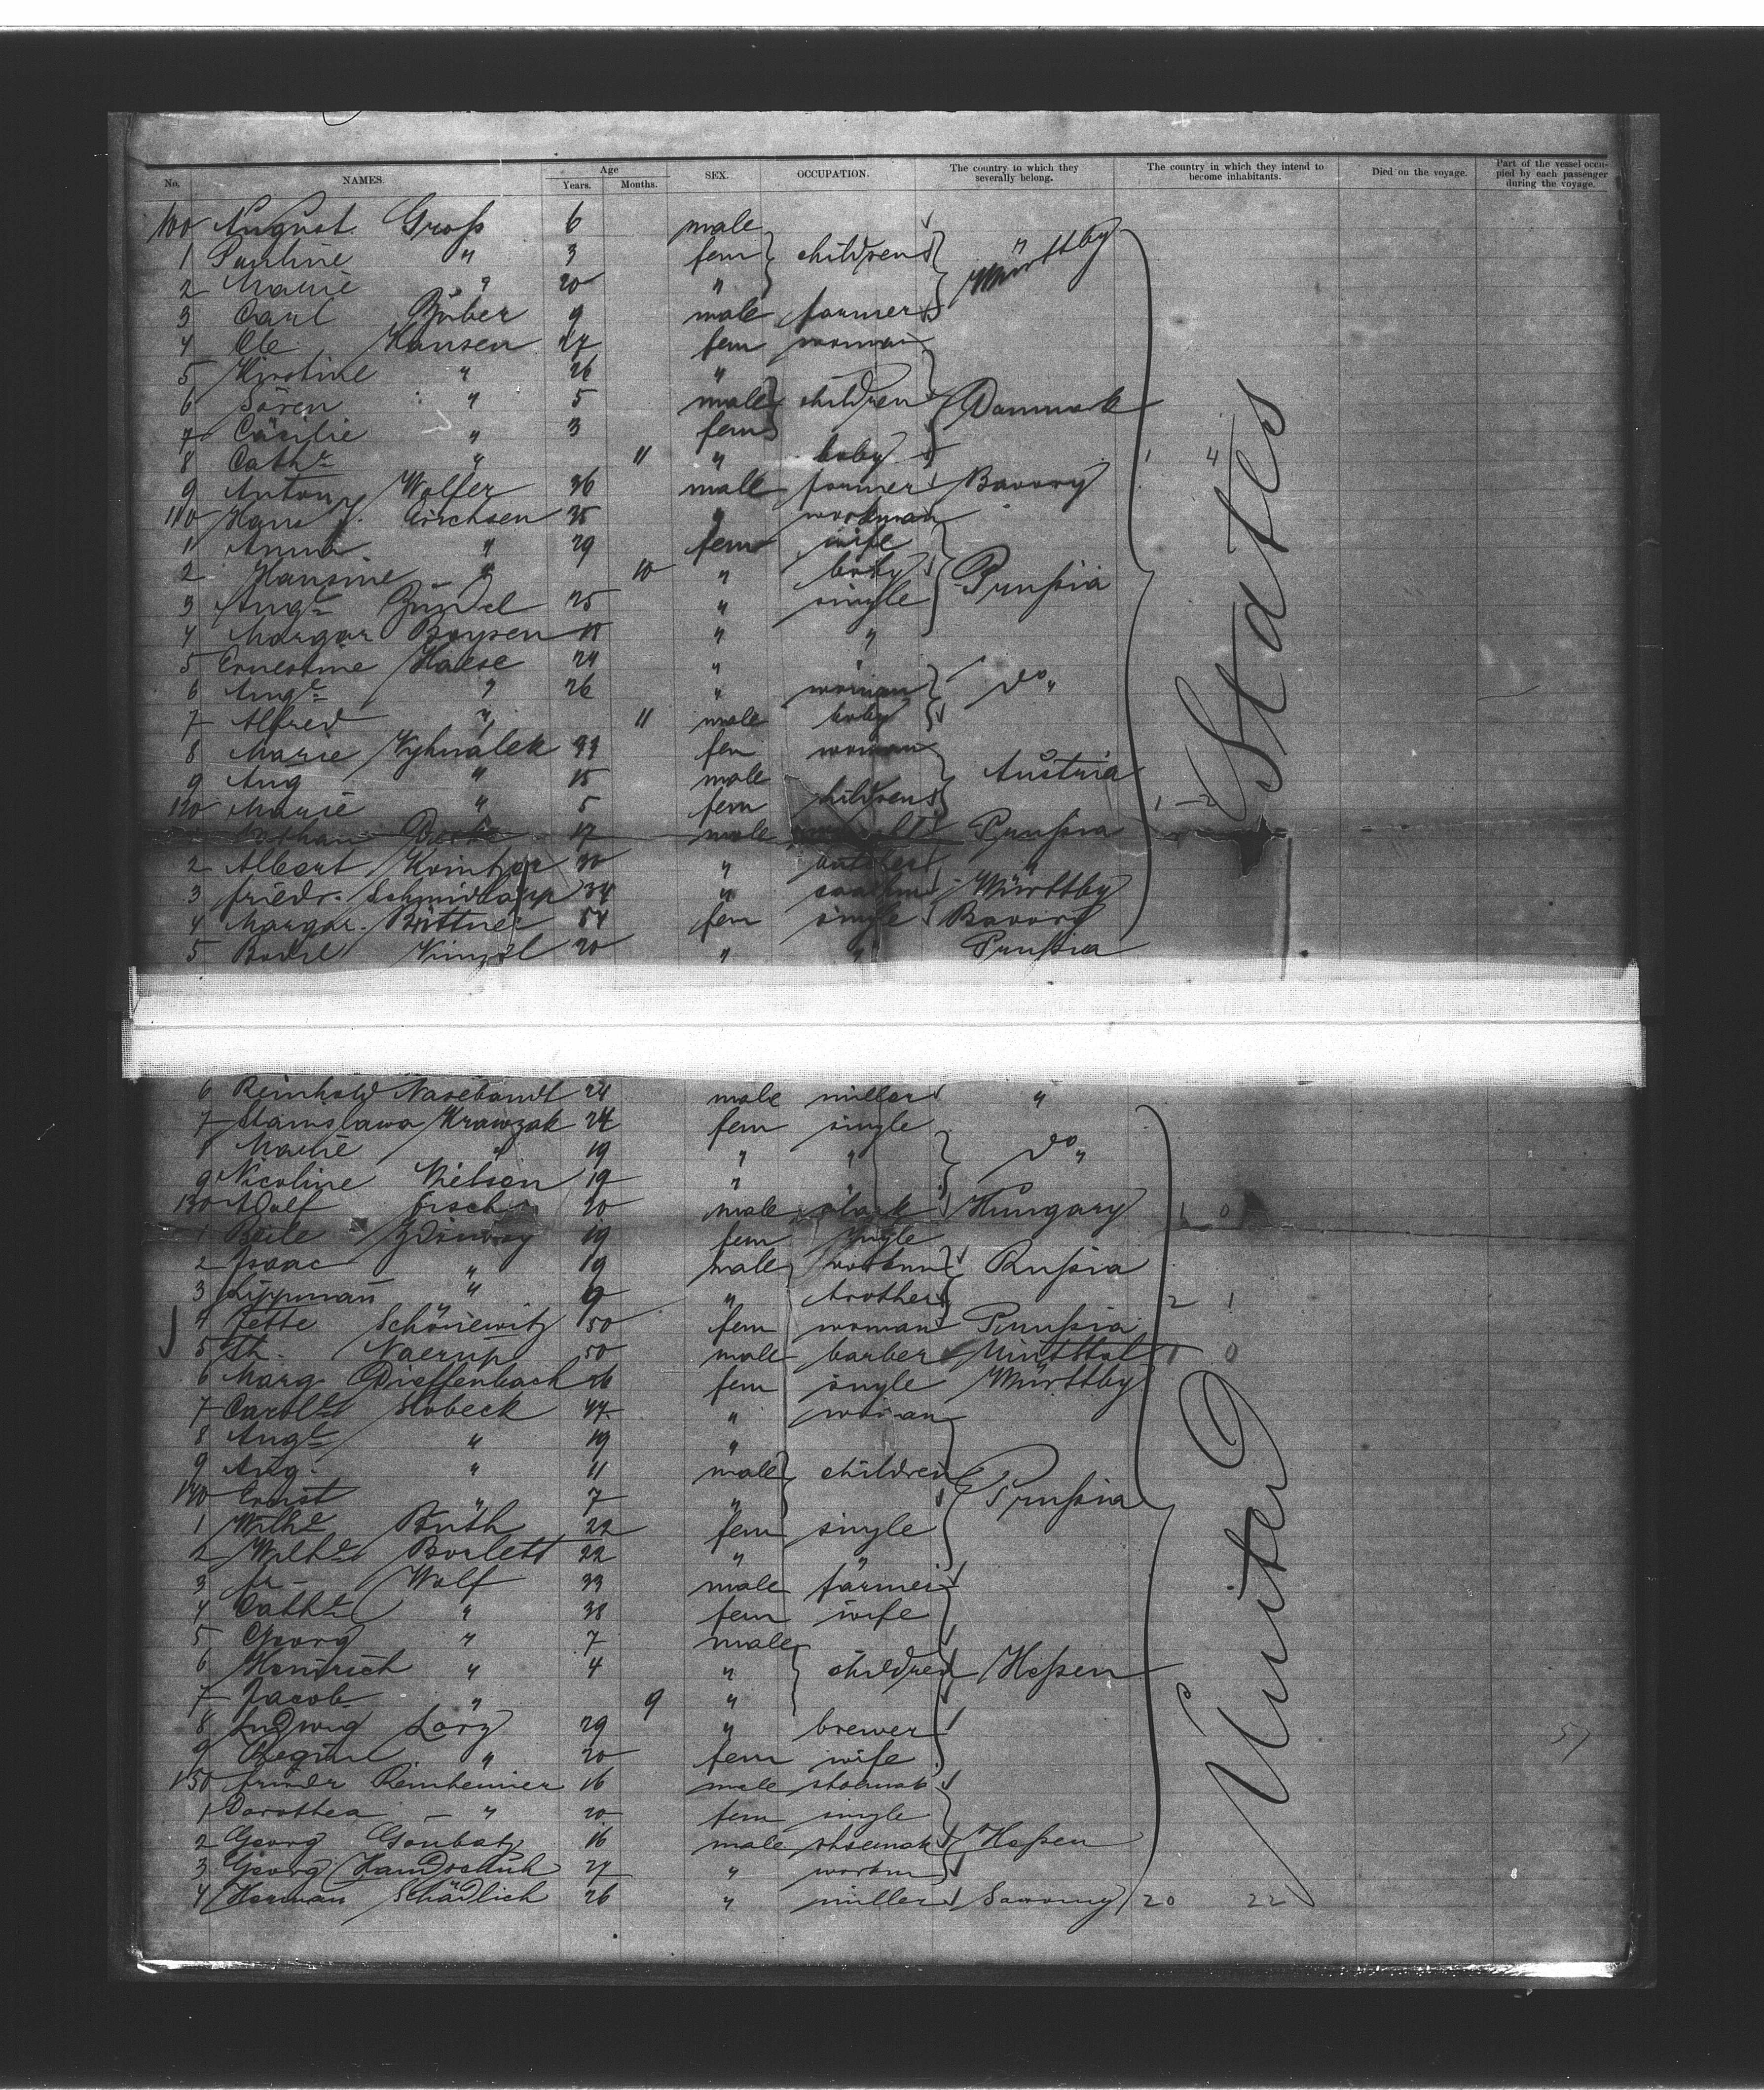 No. NAMES. Age Years. Months. SEX. OCCUPATION. The country to which they severally belong. The country in which they intend to become inhabitants. Died on the voyage. Part of the vessel occupied by each passenger during the voyage.
100 August Groß 6 male
1 Pauline " 3 fem children " Württbg
2 Marie " 20 "
3 Carl 9 male farmer
4 Ole Hansen 27 fem woman
5 Kirstine " 26 "
6 Sören " 5 male children Danmark
7 Cäcilie " 3 fem
8 Cathe " 11 " baby 1 4
9 Anton Wolfer 36 male farmer Bavary
110 Hans J. 35 " workman
1 Anna " 29 fem wife
2 Hansine " 10 " baby Prußia
3 Auge 25 " single
4 Margar Boysen 18 " "
5 Ernestine Haese 24 " "
6 Auge " 26 " woman do "
7 Alfred " 11 male baby
8 Marie Vyhnalek 33 fem woman
9 Aug " 15 male Austria
120 Marie " 5 fem children 1 - 2
Nathan 17 male Prußia
2 Albert 30 " butcher "
3 Friedr. Schmidlapp 34 " Württbg
4 Margar. Büttner 54 fem single Bavary
5 20 " " Prußia
6 Reinhold Nasebandt 24 male miller "
7 Stanislawa Krawzak 24 fem single
8 Marie " 19 " " do "
9 Nicoline Nielsen 19 "
130 Adolf 20 male Hungary 1 0
1 Beile 19 fem single
2 Isaac " 19 male workm Rußia
3 Lippman " 9 " brother 2 1
4 Jette Schönewitz 50 fem woman Prußia
5 Th. Naerup 50 male barber 1 0
6 Marg Dieffenbach 26 fem single Württbg
7 Carole Slobeck 47 " woman
8 Auge " 19 "
9 Aug. " 11 male children
140 Ernst " 7 " Prußia
1 Wilhe Buth 22 fem single
2 Wilhe Borlett 22 " "
3 Fr. Wolf 33 male farmer
4 Cathe " 38 fem wife
5 Georg " 7 male
6 Heinrich " 4 " children Heßen
7 Jacob " 9 "
8 Ludwig Lorz 29 " brewer 57
9 Regine " 20 fem wife
150 Reinheimer 16 male shoemak
1 Dorothea - " 20 fem single
2 Georg 16 male shoemak Heßen
3 Georg Handschuh 27 " workm
4 Herman Schädlich 26 " miller 20 22
United States